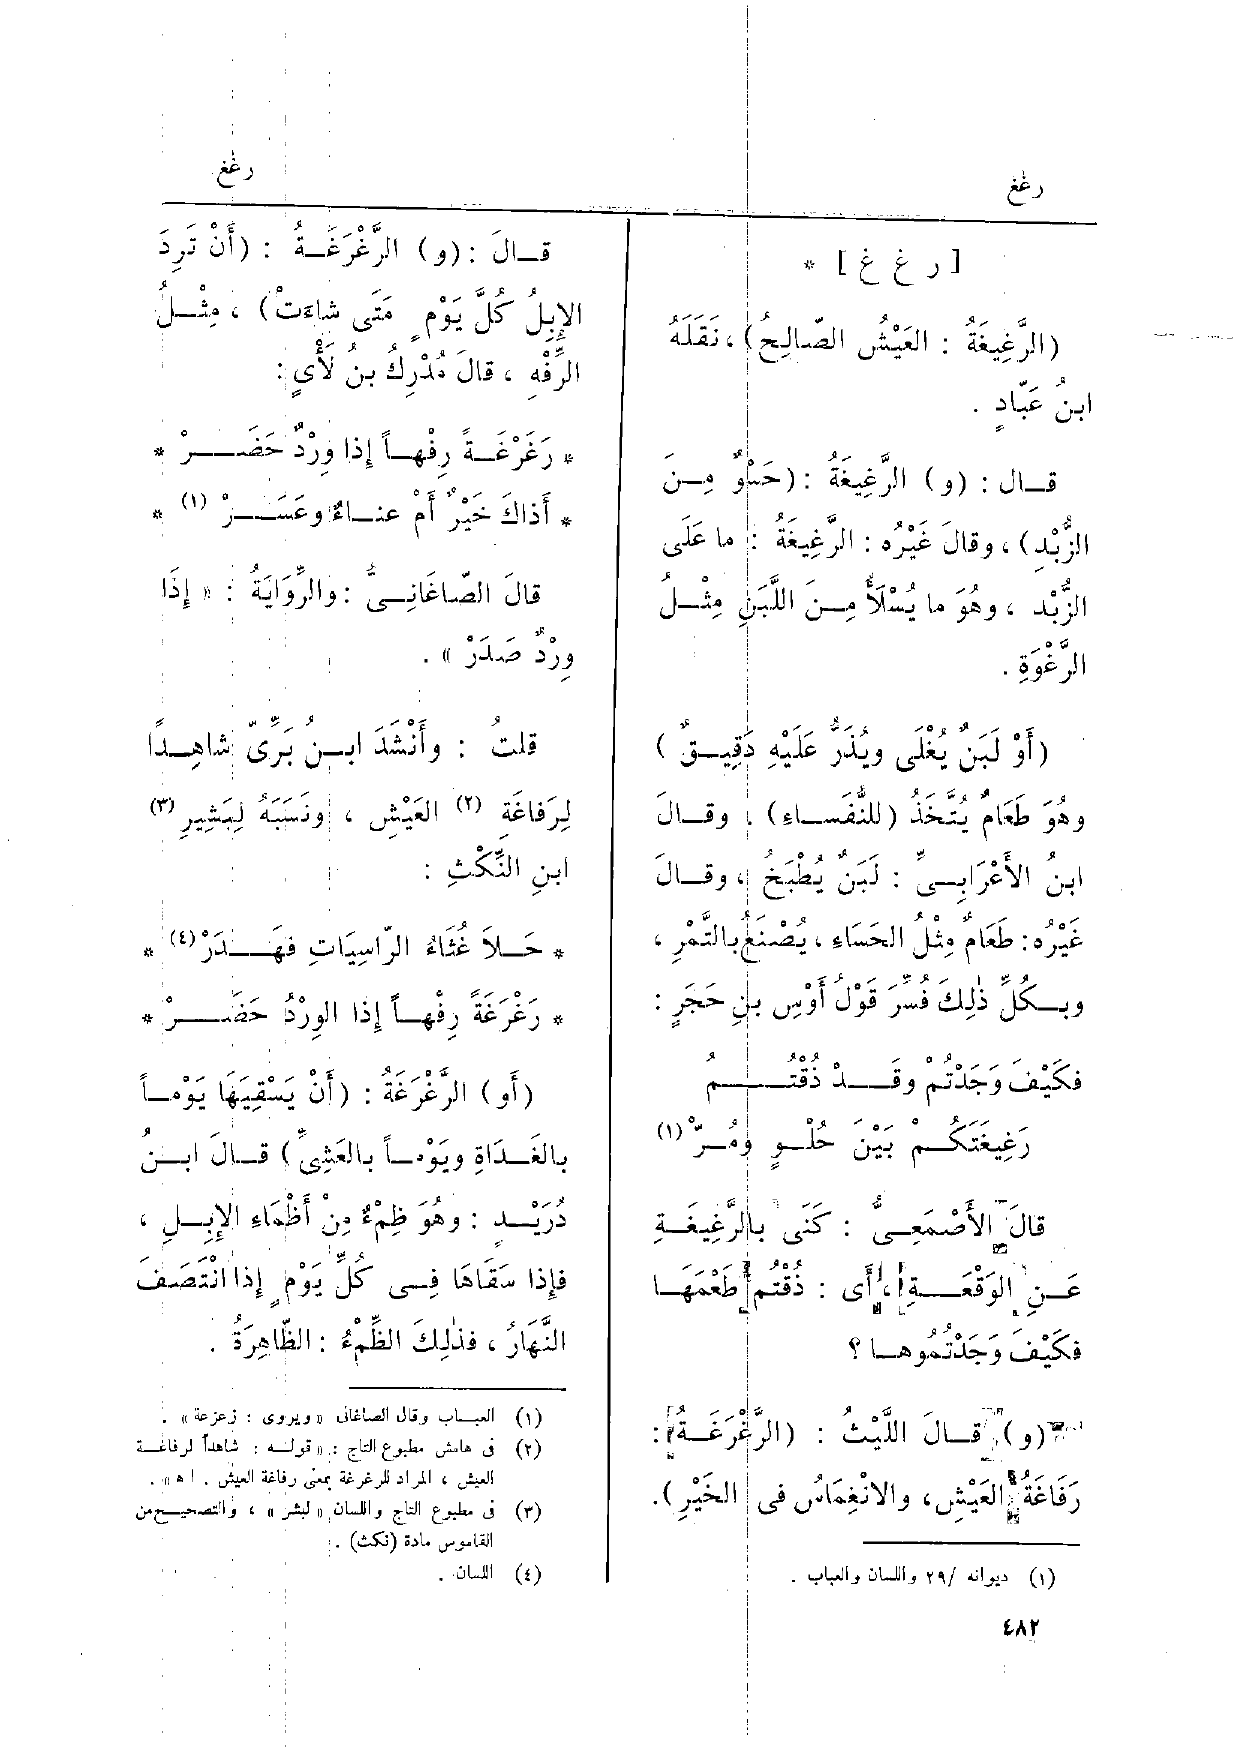 رغغ
رغغ
[ ر غ غ ] *
(الرَّغِيغَةُ : العَيْشُ الصّالِحُ) ، نَقَلَهُ
ابنُ عَبّادٍ .
قــال : (و) الرَّغِيغَةُ : (حَسْوٌ مِـنَ
الزُّبْدِ) ، وقالَ غَيْرُه : الرَّغِيغَةُ : ما عَلَى
الزُّبْد ، وهُوَ ما يُسْلَأُ مِـنَ اللَّبَنِ مِثْـلُ
الرَّغْوَةِ .
(أَوْ لَبَنٌ يُغْلَى ويُذَرُّ عَلَيْهِ دَقِيـقٌ )
وهُوَ طَعَامٌ يُتَّخَذُ (للنُّفَسـاءِ) ، وقـالَ
ابنُ الأَعْرَابِـىِّ : لَبَنٌ يُطْبَخُ ، وقـالَ
غَيْرُه : طَعَامٌ مِثْلُ الحَسَاءِ ، يُصْنَعُ بالتَّمْرِ ،
وبـكُلِّ ذٰلِكَ فُسِّرَ قَوْلُ أَوْسِ بنِ حَجَرٍ :
فكَيْفَ وَجَدْتُمْ وقَـدْ ذُقْتُـمُ
رَغِيغَتَكُـمْ بَيْنَ حُلْـوٍ ومُـرّْ (١)
قالَ الأَصْمَعِـىُّ : كَنَى بالرَّغِيغَـةِ
عَـنِ الوَقْعَـةِ ، أَى : ذُقْتُم طَعْمَهـا
فكَيْفَ وَجَدْتُمُوهـا ؟
(و) قـالَ اللَّيْثُ : (الرَّغْرَغَـةُ :
رَفَاغَةُ العَيْشِ ، والانْغِمَاسُ فى الخَيْرِ) .
(١) ديوانه /٢٩ واللسان والعباب .
٤٨٢
قـالَ : (و) الرَّغْرَغَـةُ : (أَنْ تَرِدَ
الإبِلُ كُلَّ يَوْمٍ مَتَى شاءَتْ) ، مِثْـلُ
الرِّفْهِ ، قالَ مُدْرِكُ بنُ لَأْىٍ :
* رَغْرَغَـةً رِفْهـاً إِذا وِرْدٌ حَضَـرْ *
* أَذاكَ خَيْرٌ أَمْ عنـاءٌ وعَسَـرْ (١) *
قالَ الصّاغَانِـىُّ : والرِّوَايَةُ : « إِذَا
وِرْدٌ صَدَرْ » .
قلتُ : وأَنْشَدَ ابـنُ بَرِّىّ شاهِـداً
لِرَفاغَةِ (٢) العَيْشِ ، ونَسَبَهُ لِبَشِيرِ (٣)
ابنِ النِّكْثِ :
* حَـلَا غُثَاءُ الرّاسِيَاتِ فهَـدَرْ (٤) *
* رَغْرَغَةً رِفْهـاً إِذا الوِرْدُ حَضَـرْ *
(أَو) الرَّغْرَغَةُ : (أَنْ يَسْقِيَهَا يَوْمـاً
بالغَـدَاةِ ويَوْمـاً بالعَشِىِّ) قـالَ ابـنُ
دُرَيْـدٍ : وهُوَ ظِمْءٌ مِنْ أَظْمَاءِ الإبِـلِ ،
فإذا سَقَاهَا فِـى كُلِّ يَوْمٍ إِذا انْتَصَفَ
النَّهارُ ، فذٰلِكَ الظِّمْءُ : الظّاهِرَةُ .
(١) العبـاب وقال الصاغانى « ويروى : زعزعة » .
(٢) فى هامش مطبوع التاج : « قولـه : شاهداً لرفاغـة
العيش ، المراد للرغرغة بمعنى رفاغة العيش . ا ه » .
(٣) فى مطبوع التاج واللسان « لبشر » ، والتصحيـح من
القاموس مادة (نكث) .
(٤) اللسان .